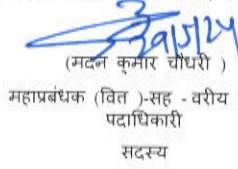 (मदन कुमार चौधरी )
महाप्रबंधक (वित )-सह - वरीय
पदाधिकारी
सदस्य